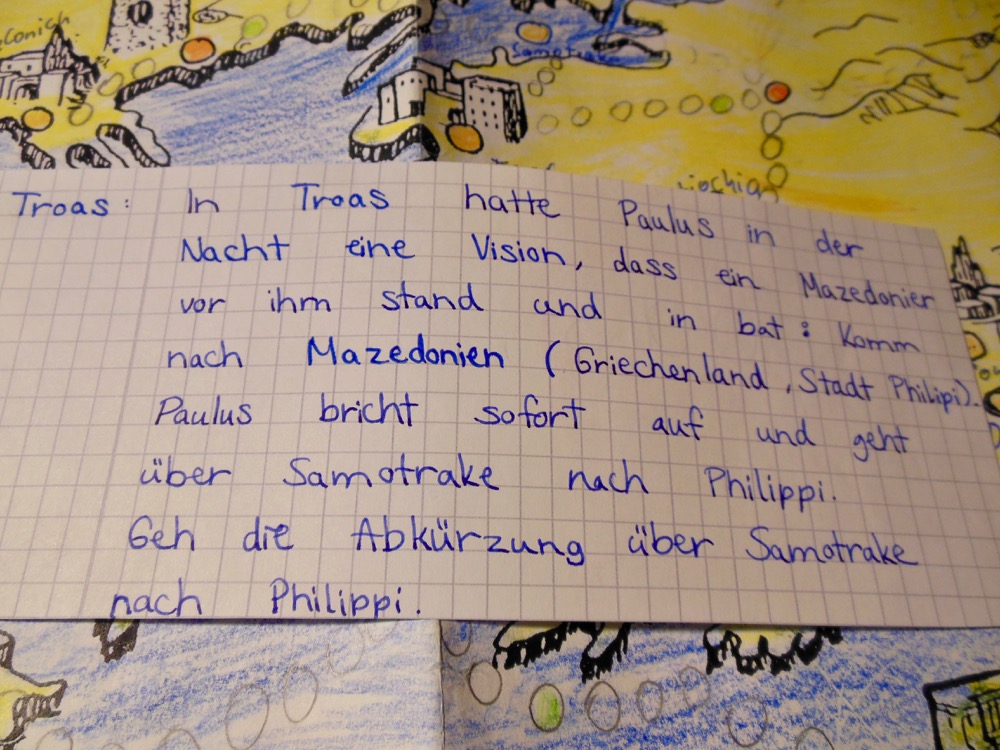 Troas: In Troas hatte Paulus in der
Nacht eine Vision, dass ein Mazedonier
vor ihm stand und in bat: Komm
nach Mazedonien (Griechenland, Stadt Philipi).
Paulus bricht sofort auf und geht
über Samotrake nach Philippi.
Geh die Abkürzung über Samotrake
nach Philippi.